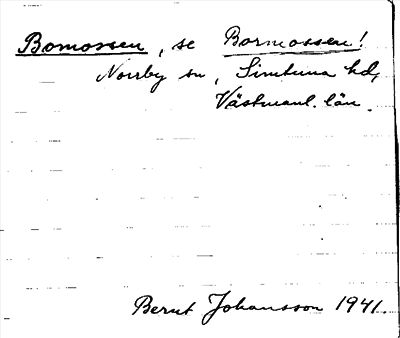 Bomossen, se Bormossen!
Norrby sn, Simtuna hd,
Västmanl. län.
Bernt Johansson 1941.